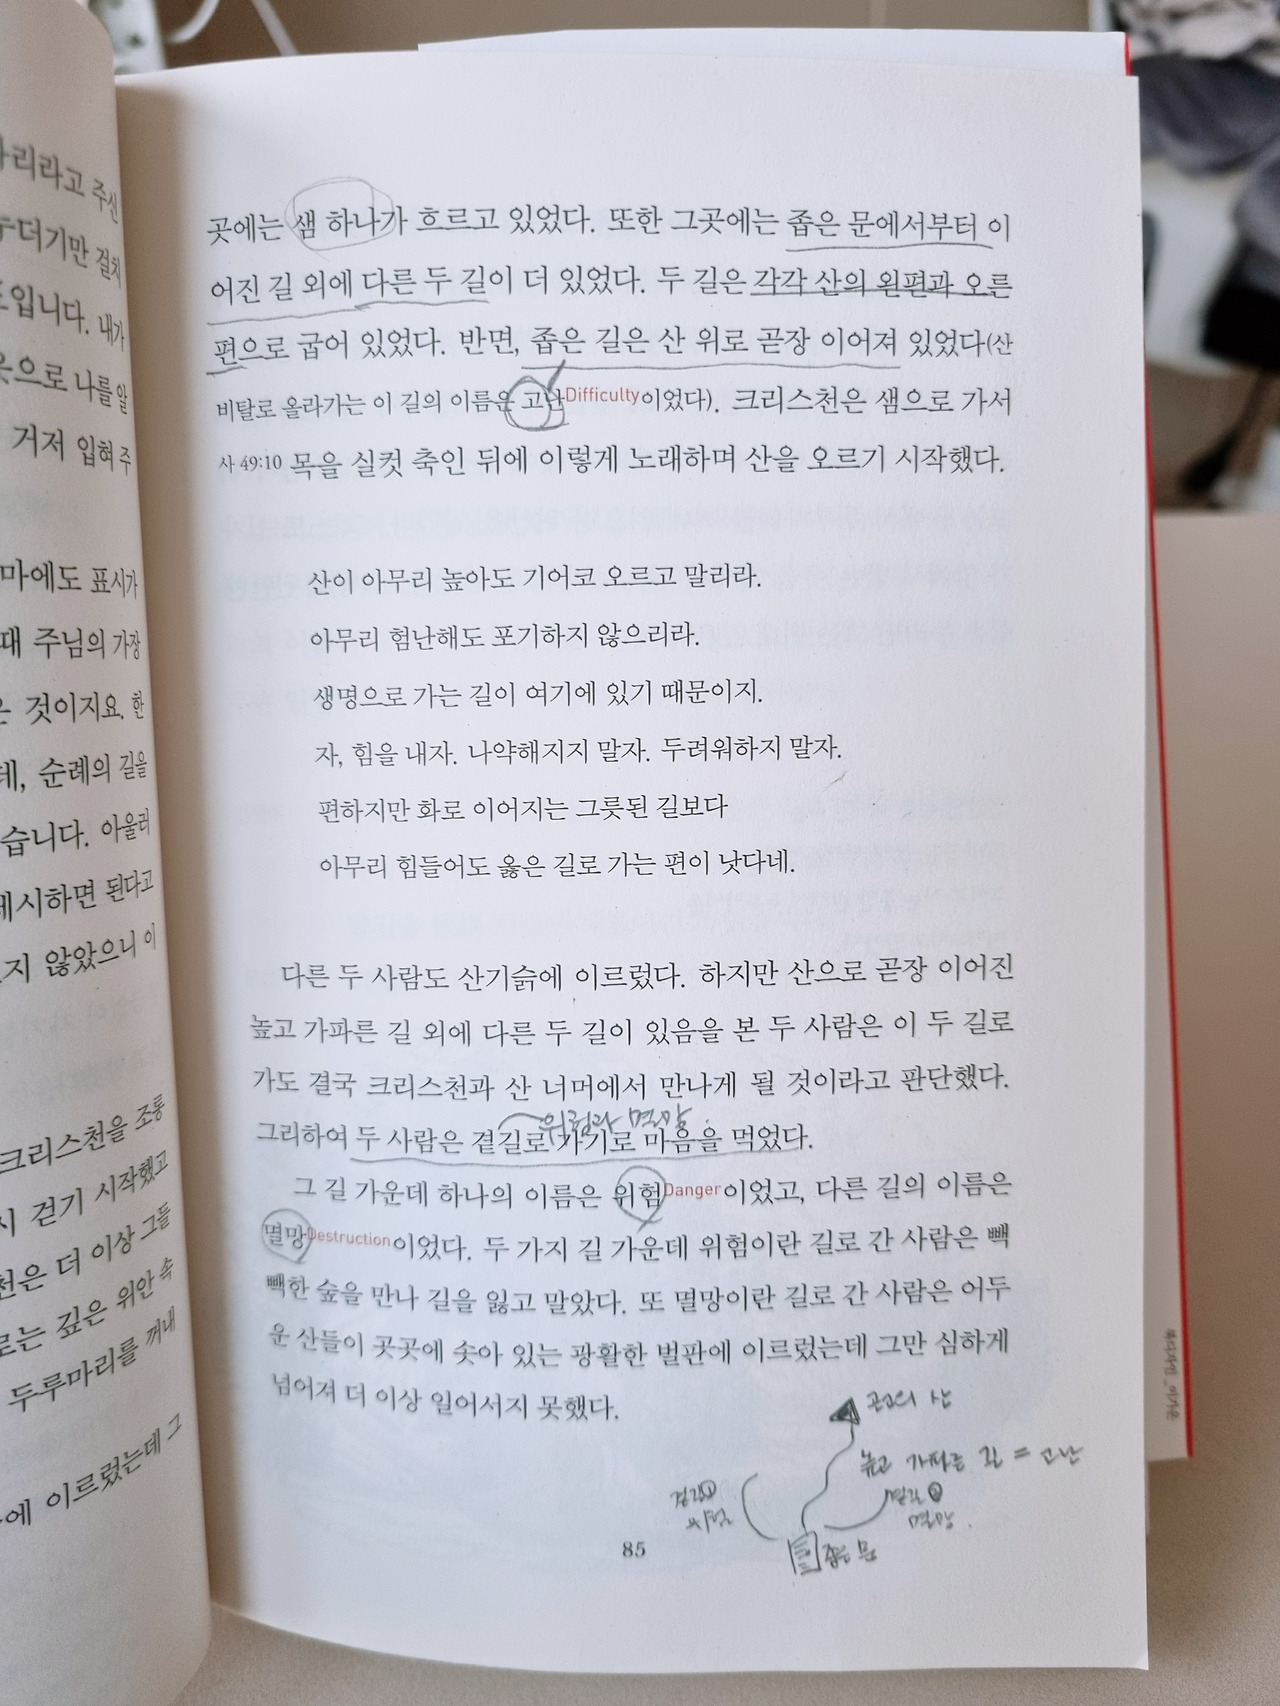 곳에는 샘 하나가 흐르고 있었다. 또한 그곳에는 좁은 문에서부터 이
어진 길 외에 다른 두 길이 더 있었다. 두 길은 각각 산의 왼편과 오른
편으로 굽어 있었다. 반면, 좁은 길은 산 위로 곧장 이어져 있었다(산
비탈로 올라가는 이 길의 이름은 고난Difficulty이었다). 크리스천은 샘으로 가서
사 49:10 목을 실컷 축인 뒤에 이렇게 노래하며 산을 오르기 시작했다.
산이 아무리 높아도 기어코 오르고 말리라.
아무리 험난해도 포기하지 않으리라.
생명으로 가는 길이 여기에 있기 때문이지.
자, 힘을 내자. 나약해지지 말자. 두려워하지 말자.
편하지만 화로 이어지는 그릇된 길보다
아무리 힘들어도 옳은 길로 가는 편이 낫다네.
다른 두 사람도 산기슭에 이르렀다. 하지만 산으로 곧장 이어진
높고 가파른 길 외에 다른 두 길이 있음을 본 두 사람은 이 두 길로
가도 결국 크리스천과 산 너머에서 만나게 될 것이라고 판단했다.
위험과 멸망.
그리하여 두 사람은 곁길로 가기로 마음을 먹었다.
그 길 가운데 하나의 이름은 위험Danger이었고, 다른 길의 이름은
멸망Destruction이었다. 두 가지 길 가운데 위험이란 길로 간 사람은 빽
빽한 숲을 만나 길을 잃고 말았다. 또 멸망이란 길로 간 사람은 어두
운 산들이 곳곳에 솟아 있는 광활한 벌판에 이르렀는데 그만 심하게
넘어져 더 이상 일어서지 못했다.
산
높고 가파른 길 = 고난
곁길①
위험
곁길②
멸망.
좁은 문
85
아리라고 주신
누더기만 걸치
도입니다. 내가
옷으로 나를 알
거저 입혀 주
마에도 표시가
때 주님의 가장
은 것이지요. 한
데, 순례의 길을
습니다. 아울러
제시하면 된다고
지 않았으니 이
크리스천을 조롱
시 걷기 시작했고
천은 더 이상 그들
로는 깊은 위안 속
두루마리를 꺼내
에 이르렀는데 그